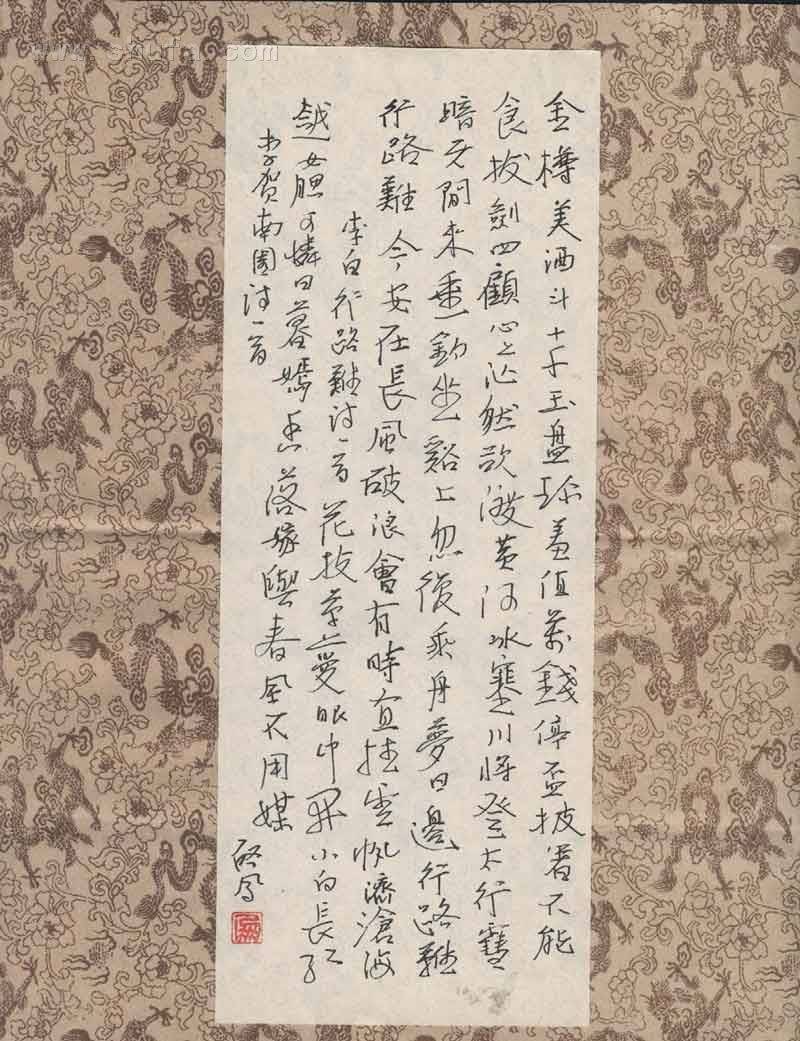 www.shufa.com
金樽美酒斗十千玉盤珍羞值萬錢停盃投箸不能
食拔劍四顧心茫然欲渡黄河冰塞川將登太行雪
暗天閒來垂釣坐谿上忽復乘舟夢日邊行路難
行路難今安在長風破浪會有時直挂雲帆濟滄海
李白行路難诗一首 花枝草蔓眼中開小白長红
越女腮可憐日暮嫣香落嫁與春風不用媒
李賀南園诗一首